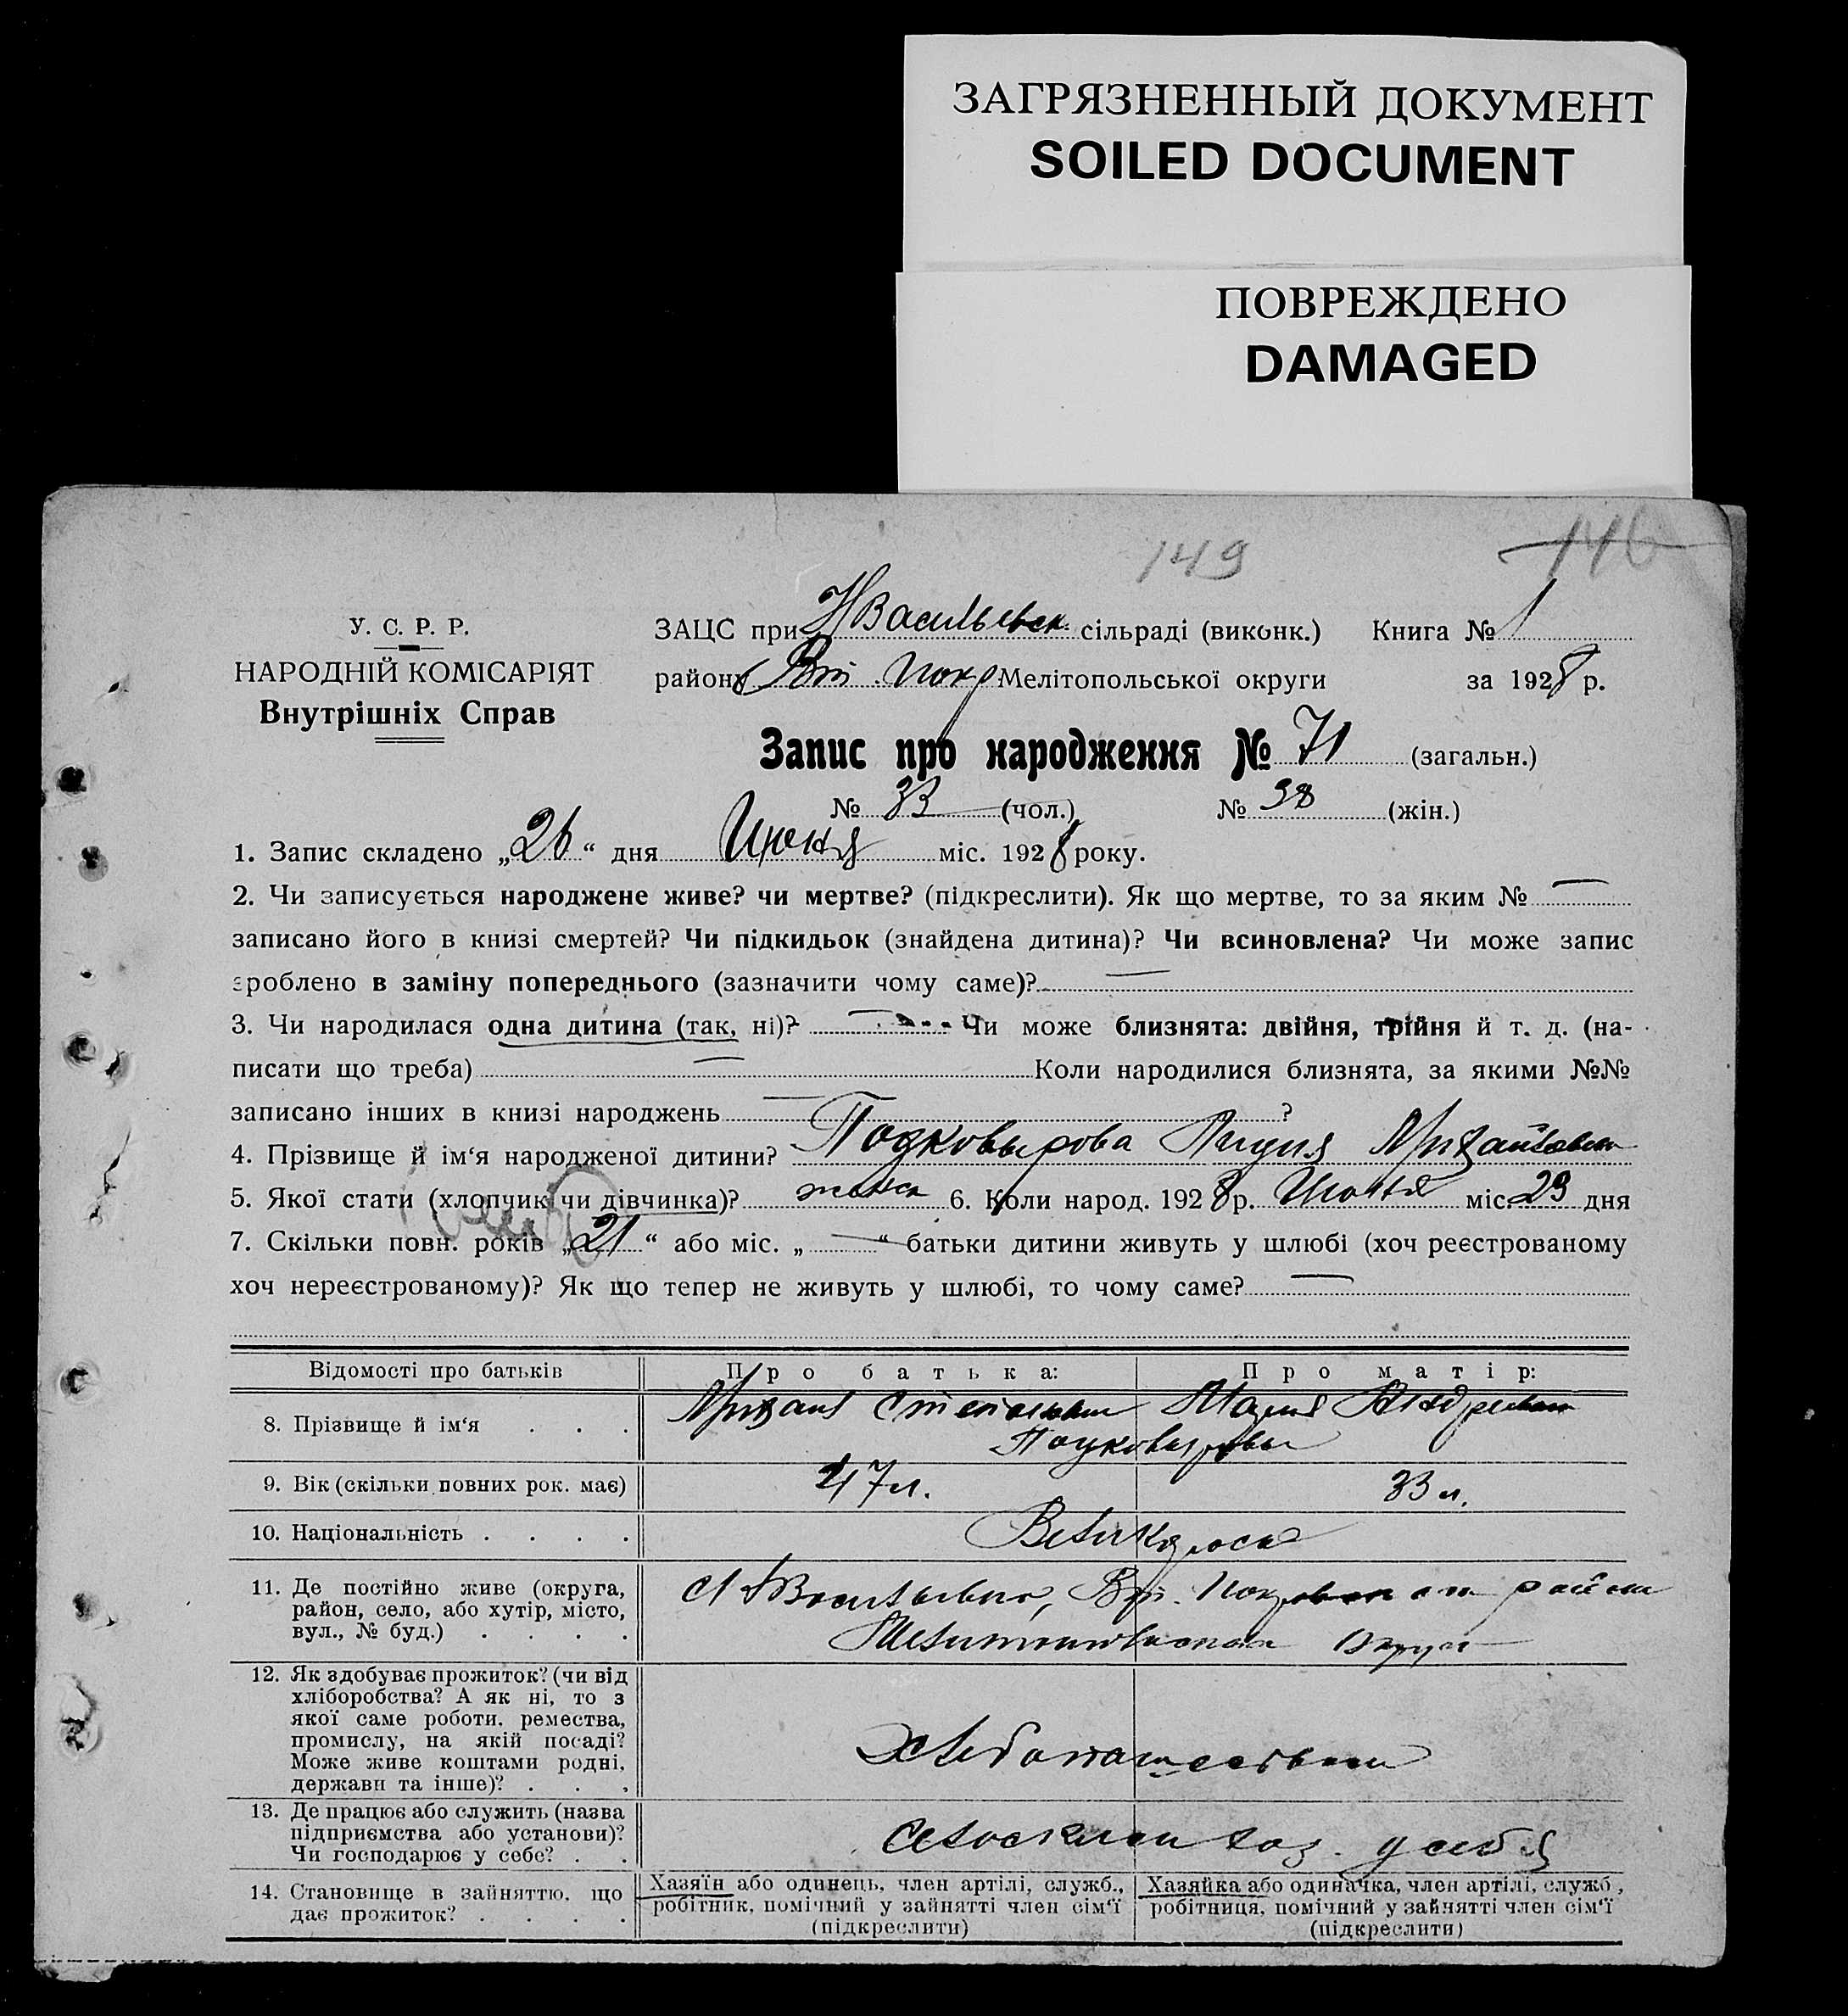 ЗАГРЯЗНЕННЫЙ ДОКУМЕНТ
SOILED DOCUMENT
ПОВРЕЖДЕНО
DAMAGED
149 146
У. С. Р. Р.
НАРОДНІЙ КОМІСАРІЯТ
Внутрішніх Справ
ЗАЦС при НВасильевск. сільраді (виконк.) Книга № 1
району Вт. Покр Мелітопольської округи за 1928 р.
Запис про народження № 71 (загальн.)
№ 33 (чол.) № 38 (жін.)
1. Запис складено „26“ дня Июня міс. 1928 року.
2. Чи записується народжене живе? чи мертве? (підкреслити). Як що мертве, то за яким № —
записано його в книзі смертей? Чи підкидьок (знайдена дитина)? Чи всиновлена? Чи може запис
зроблено в заміну попереднього (зазначити чому саме)? —
3. Чи народилася одна дитина (так, ні)? — Чи може близнята: двійня, трійня й т. д. (на-
писати що треба) — Коли народилися близнята, за якими №№
записано інших в книзі народжень — ?
4. Прізвище й ім‘я народженої дитини? Подковырова Лидия
5. Якої стати (хлопчик чи дівчинка)? женск 6. Коли народ. 1928 р. Июня міс. 23 дня
7. Скільки повн. років „21“ або міс. „—“ батьки дитини живуть у шлюбі (хоч реєстрованому
хоч нереєстрованому)? Як що тепер не живуть у шлюбі, то чому саме? —
Відомості про батьків Про батька: Про матір:
8. Прізвище й ім‘я . . . Мария Андреевна
Подковыровы
9. Вік (скільки повних рок. має) 47 л. 33 л.
10. Національність . . . . Великоросы
11. Де постійно живе (округа,
район, село, або хутір, місто,
вул., № буд.) . . . .
с НВасильевка, Вт. Покровского района
Мелитопольского Округа
12. Як здобуває прожиток? (чи від
хліборобства? А як ні, то з
якої саме роботи, ремества,
промислу, на якій посаді?
Може живе коштами родні,
держави та інше)? . . .
Хлебопашеством
13. Де працює або служить (назва
підприємства або установи)?
Чи господарює у себе? . .
хоз. у себя
14. Становище в зайняттю, що
дає прожиток? . . . .
Хазяїн або одинець, член артілі, служб.,
робітник, помічний у зайнятті член сім‘ї
(підкреслити)
Хазяйка або одиначка, член артілі, служб.,
робітниця, помічний у зайнятті член сім‘ї
(підкреслити)